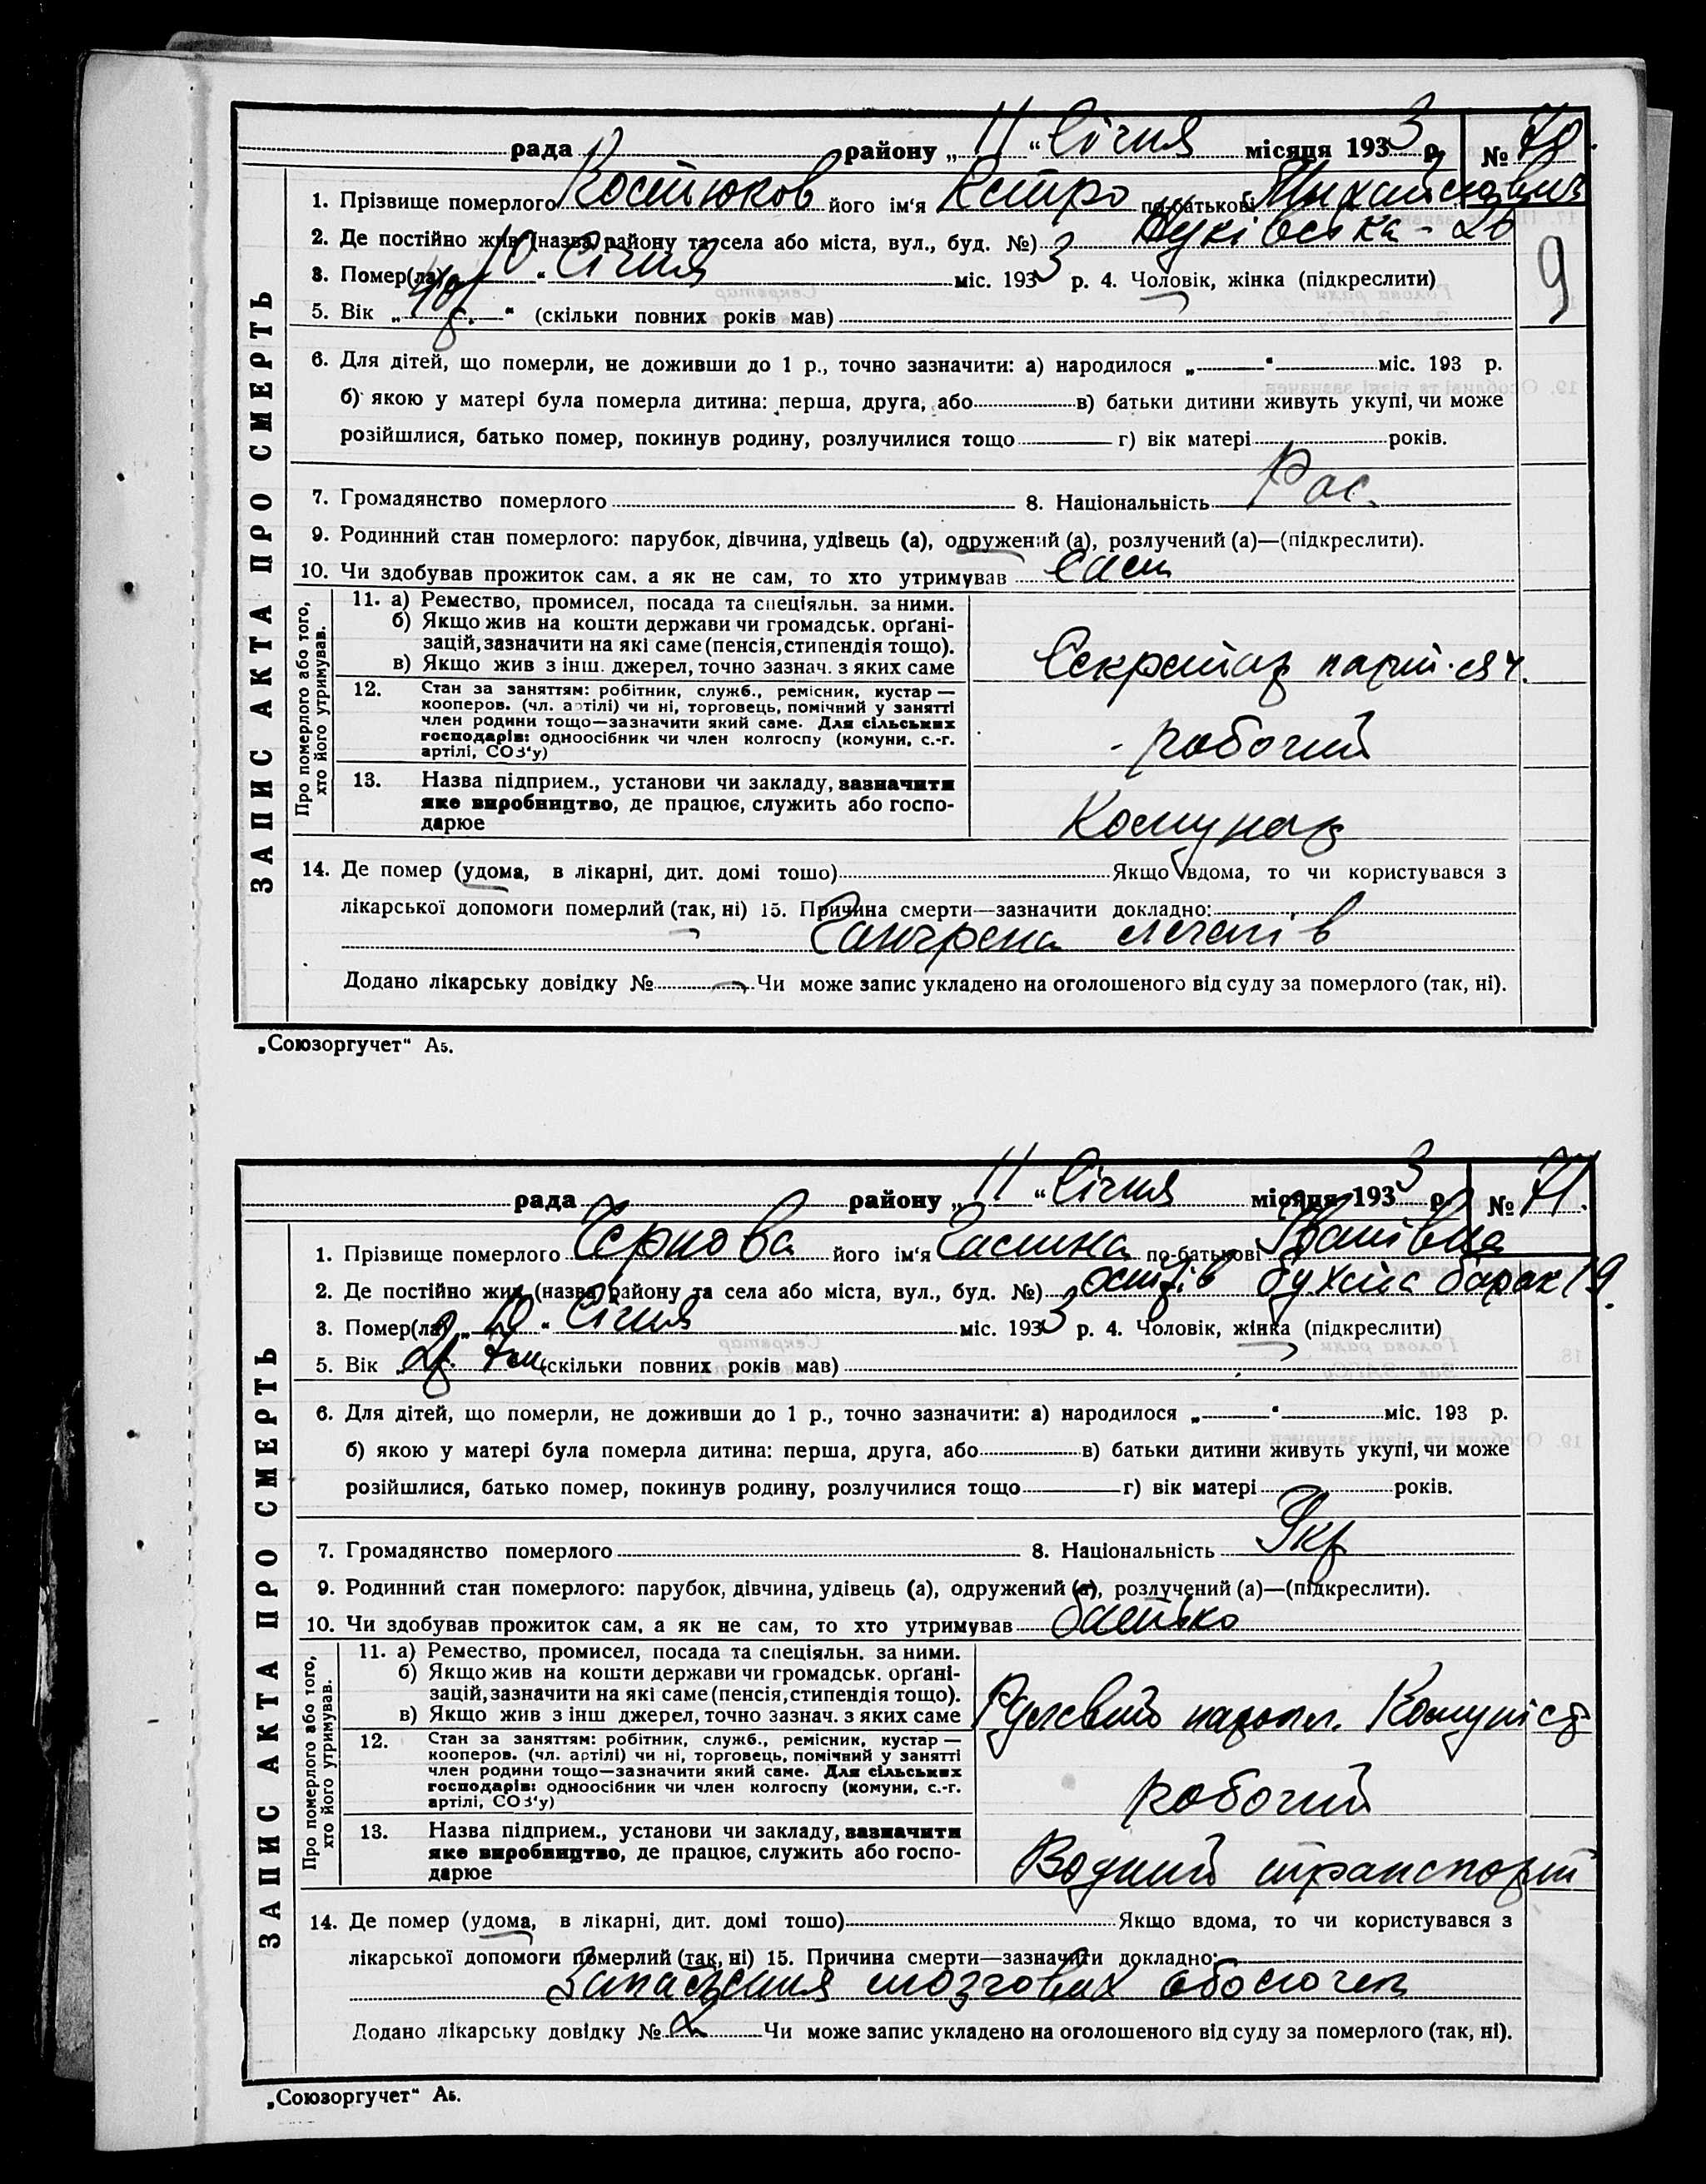 рада району „11“ Січня місяця 1933 р. № 70.
ЗАПИС АКТА ПРО СМЕРТЬ
1. Прізвище померлого Костюков його ім'я Петро по-батькові Михайлович
2. Де постійно жив (назва району та села або міста, вул., буд. №) 20
9
3. Помер(ла) „10“ Січня міс. 1933 р. 4. Чоловік, жінка (підкреслити)
5. Вік „40 р.“ (скільки повних років мав)
6. Для дітей, що померли, не доживши до 1 р., точно зазначити: а) народилося „ “ міс. 193 р.
б) якою у матері була померла дитина: перша, друга, або в) батьки дитини живуть укупі, чи може
розійшлися, батько помер, покинув родину, розлучилися тощо г) вік матері років.
7. Громадянство померлого 8. Національність Рос.
9. Родинний стан померлого: парубок, дівчина, удівець (а), одружений (а), розлучений (а)—(підкреслити).
10. Чи здобував прожиток сам, а як не сам, то хто утримував Сам
Про померлого або того, хто його утримував.
11. а) Ремество, промисел, посада та спеціяльн. за ними.
б) Якщо жив на кошти держави чи громадськ. орґані-
зацій, зазначити на які саме (пенсія, стипендія тощо).
в) Якщо жив з інш. джерел, точно зазнач. з яких саме
Секретар парт. яч.
12. Стан за заняттям: робітник, служб., ремісник, кустар —
кооперов. (чл. артілі) чи ні, торговець, помічний у занятті
член родини тощо—зазначити який саме. Для сільських
господарів: одноосібник чи член колгоспу (комуни, с.-г.
артілі, СОЗ'у)
робочий
13. Назва підприєм., установи чи закладу, зазначити
яке виробництво, де працює, служить або госпо-
дарює
Комунар
14. Де помер (удома, в лікарні, дит. домі тощо) Якщо вдома, то чи користувався з
лікарської допомоги померлий (так, ні) 15. Причина смерти—зазначити докладно:
Гангрена легенів
Додано лікарську довідку № Чи може запис укладено на оголошеного від суду за померлого (так, ні).
„Союзоргучет“ А5.
рада району „11“ Січня місяця 1933 р. № 71.
ЗАПИС АКТА ПРО СМЕРТЬ
1. Прізвище померлого Чернова його ім'я Галина по-батькові Іванівна
2. Де постійно жив (назва району та села або міста, вул., буд. №) острів барак 19.
3. Помер(ла) „10“ Січня міс. 1933 р. 4. Чоловік, жінка (підкреслити)
5. Вік „2 р. 7 м. (скільки повних років мав)
6. Для дітей, що померли, не доживши до 1 р., точно зазначити: а) народилося „ “ міс. 193 р.
б) якою у матері була померла дитина: перша, друга, або в) батьки дитини живуть укупі, чи може
розійшлися, батько помер, покинув родину, розлучилися тощо г) вік матері років.
7. Громадянство померлого 8. Національність Укр
9. Родинний стан померлого: парубок, дівчина, удівець (а), одружений (а), розлучений (а)—(підкреслити).
10. Чи здобував прожиток сам, а як не сам, то хто утримував батько
Про померлого або того, хто його утримував.
11. а) Ремество, промисел, посада та спеціяльн. за ними.
б) Якщо жив на кошти держави чи громадськ. орґані-
зацій, зазначити на які саме (пенсія, стипендія тощо).
в) Якщо жив з інш джерел, точно зазнач. з яких саме
Рулевий паропл. Комуніст
12. Стан за заняттям: робітник, служб., ремісник, кустар —
кооперов. (чл. артілі) чи ні, торговець, помічний у занятті
член родини тощо—зазначити який саме. Для сільських
господарів: одноосібник чи член колгоспу (комуни, с.-г.
артілі, СОЗ'у)
робочий
13. Назва підприєм., установи чи закладу, зазначити
яке виробництво, де працює, служить або госпо-
дарює
Водний транспорт
14. Де помер (удома, в лікарні, дит. домі тощо) Якщо вдома, то чи користувався з
лікарської допомоги померлий (так, ні) 15. Причина смерти—зазначити докладно:
Запалення мозгових оболочек
Додано лікарську довідку № Чи може запис укладено на оголошеного від суду за померлого (так, ні).
„Союзоргучет“ А5.